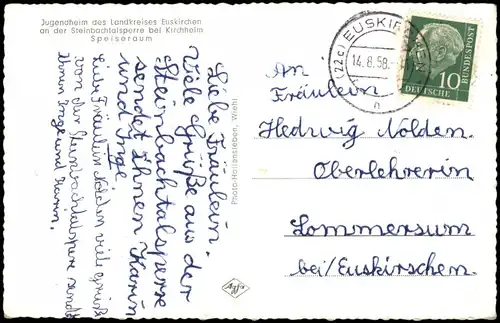 Jugendheim des Landkreises Euskirchen
an der Steinbachtalsperre bei Kirchheim
Speiseraum
Liebe Fräulein.
Viele Grüße aus der
Steinbachtalsperre
sendet Ihnen Karin
und Inge.
Liebe Fräulein Nolden viele Grüße
von der Steinbachtalspere sendet
Ihnen Inge und Karin.
Photo-Hollansleben, Wiehl
Agfa
(22c) EUSKIRCHEN
14.8.58.
n
10
DEUTSCHE
BUNDESPOST
An
Fräulein
Hedwig Nolden.
Oberlehrerin
Lommersum
bei/Euskirschen.